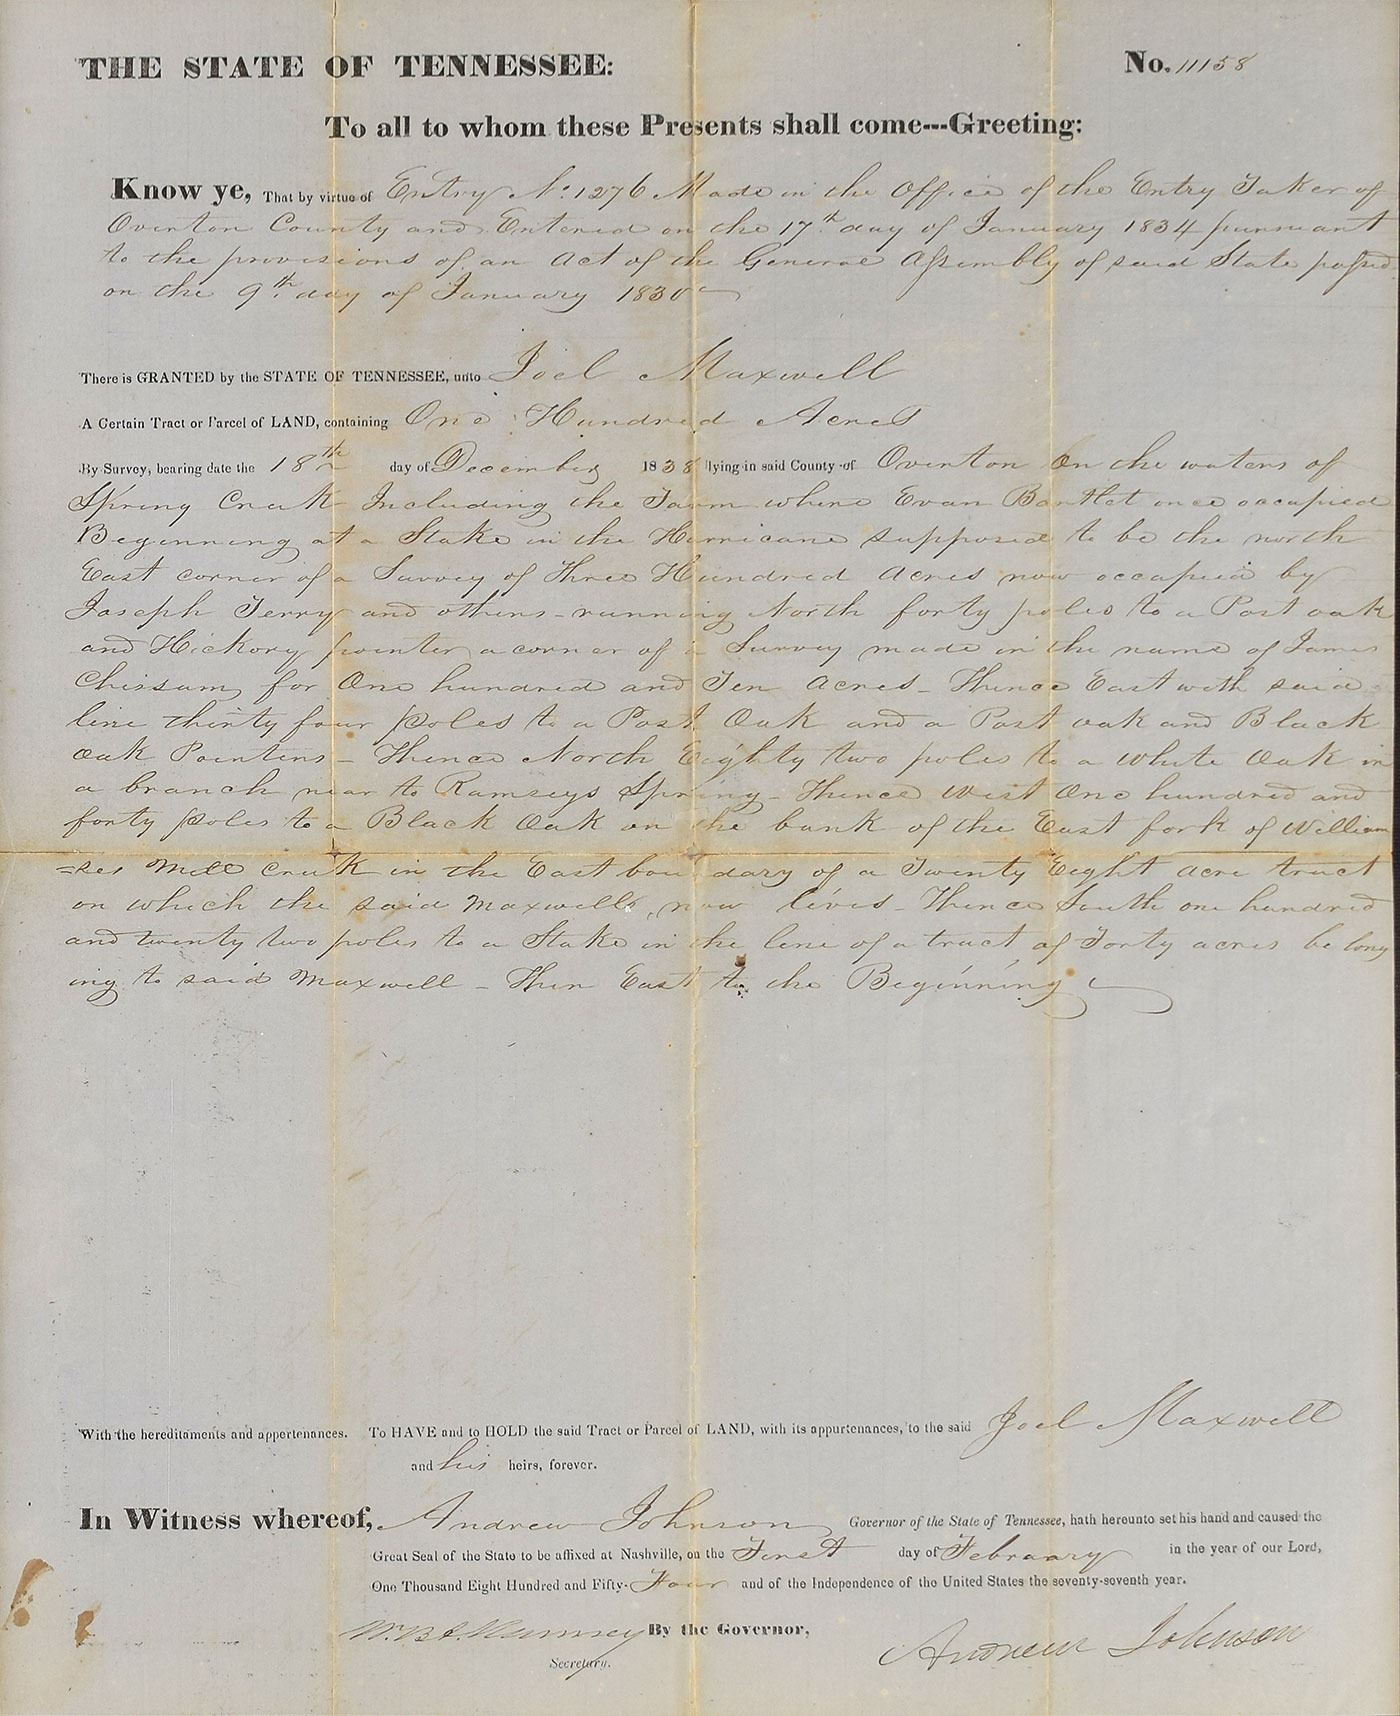 THE STATE OF TENNESSEE: No. 11158
To all to whom these Presents shall come---Greeting:
Know ye, That by virtue of Entry No. 1276 Made in the Office of the Entry Taker of
Overton County and Entered on the 17th day of January 1834 pursuant
to the provisions of an Act of the General Assembly of said State passed
on the 9th day of January 1830
There is GRANTED by the STATE OF TENNESSEE, unto Joel Maxwell
A Certain Tract or Parcel of LAND, containing One Hundred Acres
By Survey, bearing date the 18th day of December 1838 lying in said County of Overton On the waters of
Spring Creek Including the Farm where Evan Bartlet once occupied
Beginning at a Stake in the Hurricane supposed to be the north
East corner of a Survey of Three Hundred Acres now occupied by
Joseph Terry and others - running North forty poles to a Post oak
and Hickory pointer a corner of a Survey made in the name of James
Chissum for One hundred and Ten Acres - Thence East with said
line thirty four poles to a Post Oak and a Post oak and Black
Oak Pointers - Thence North Eighty two poles to a white Oak in
a branch near to Ramseys Spring - Thence West One hundred and
forty poles to a Black Oak on the bank of the East fork of William
=ses Mill Creek in the East boundary of a Twenty Eight acre tract
on which the said Maxwell now lives - Thence South one hundred
and twenty two poles to a Stake in the line of a tract of Forty acres belong
ing to said Maxwell - Then East to the Beginning
With the hereditaments and appertenances. To HAVE and to HOLD the said Tract or Parcel of LAND, with its appurtenances, to the said Joel Maxwell
and his heirs, forever.
In Witness whereof, Andrew Johnson Governor of the State of Tennessee, hath hereunto set his hand and caused the
Great Seal of the State to be affixed at Nashville, on the First day of February in the year of our Lord,
One Thousand Eight Hundred and Fifty-Four and of the Independence of the United States the seventy-seventh year.
By the Governor,
Andrew Johnson
Secretary.